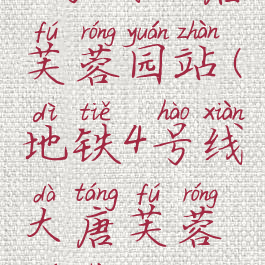 fú róng yuán zhàn
芙蓉园站(
dì tiě hào xiàn
地铁4号线
dà táng fú róng
大唐芙蓉